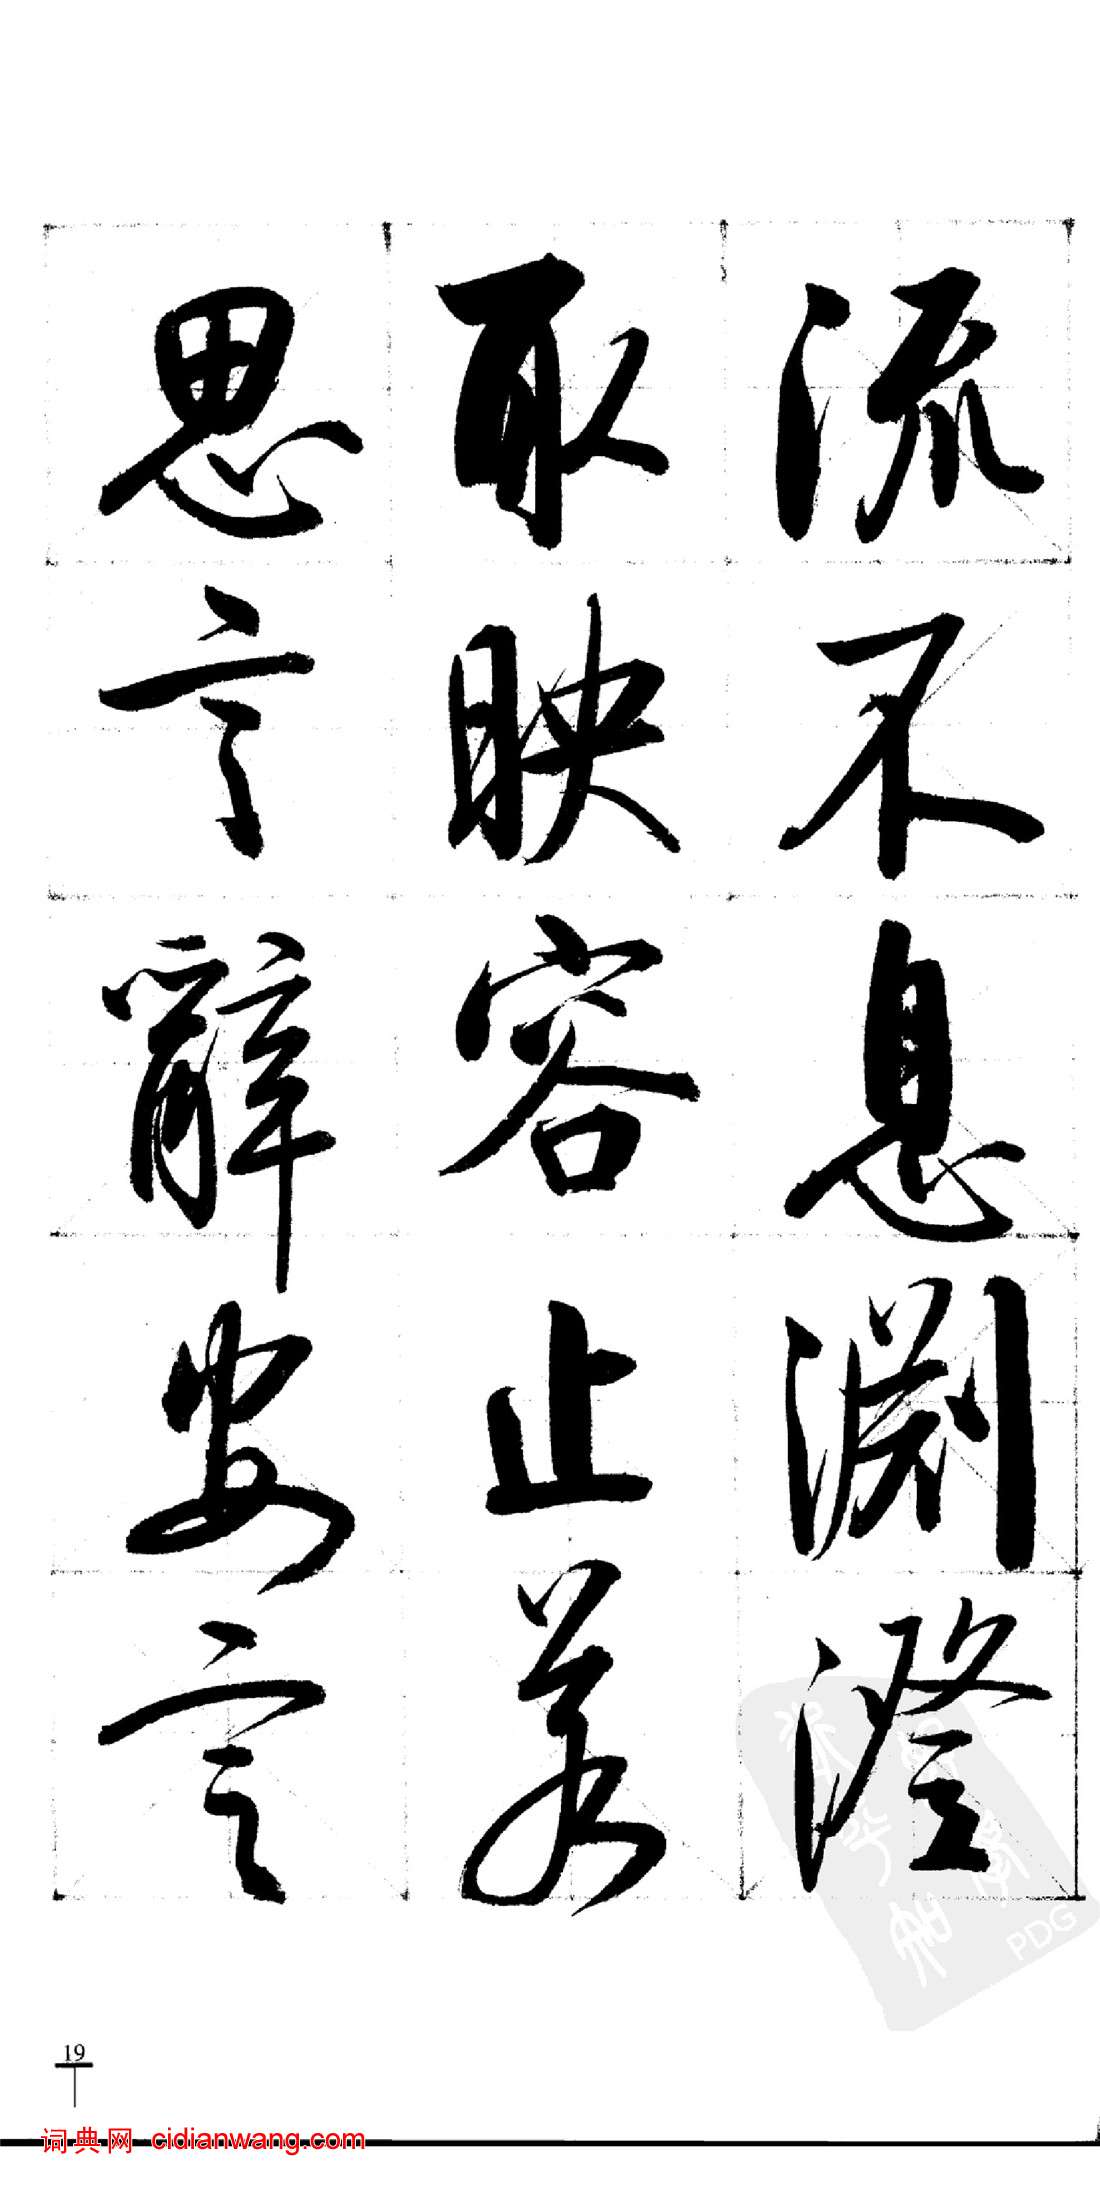 流不息淵澄
取映容止若
思言辭安定
PDG
19
词典网 cidianwang.com